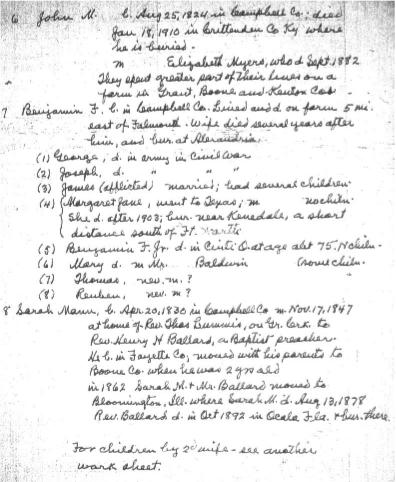 6 John M. b. Aug 25, 1824 in Campbell Co; died
Jan, 18, 1910 in Crittenden Co Ky where
he is buried.
m Elizabeth Myers, who d Sept. 1882
They spent greater part of their lives on a
farm in Grant, Boone and Kenton Cos
7 Benjamin F. b. in Campbell Co. Lived and d on farm 5 mi.
east of Falmouth. Wife died several years after
him, and bur. at Alexandria.
(1) George, d. in army in Civil War
(2) Joseph, d. " " "
(3) James (afflicted) married; had several children.
(4) Margaret Jane, went to Texas; m no chiln.
She d. after 1903; bur. near Kenedale, a short
distance south of Ft. Worth
(5) Benjamin F. Jr. d. in Cinti O. at age abt 75. N chiln.
(6) Mary d. m Mr. Baldwin (some chiln.
(7) Thomas, nev. m.?
(8) Reuben, nev. m?
8 Sarah Mann, b. Apr. 20, 1830 in Campbell Co m. Nov. 17, 1847
at home of Rev. Thos Lummis, on Gr. Crk. to
Rev. Henry H Ballard, a Baptist preacher.
He b. in Fayette Co; moved with his parents to
Boone Co. when he was 2 yrs old
in 1862 Sarah M. & Mr. Ballard moved to
Bloomington, Ill. where Sarah M. d. Aug 13, 1878
Rev. Ballard d. in Oct 1892 in Ocala Fla. & bur. there.
For children by 2d wife - see another
work sheet.